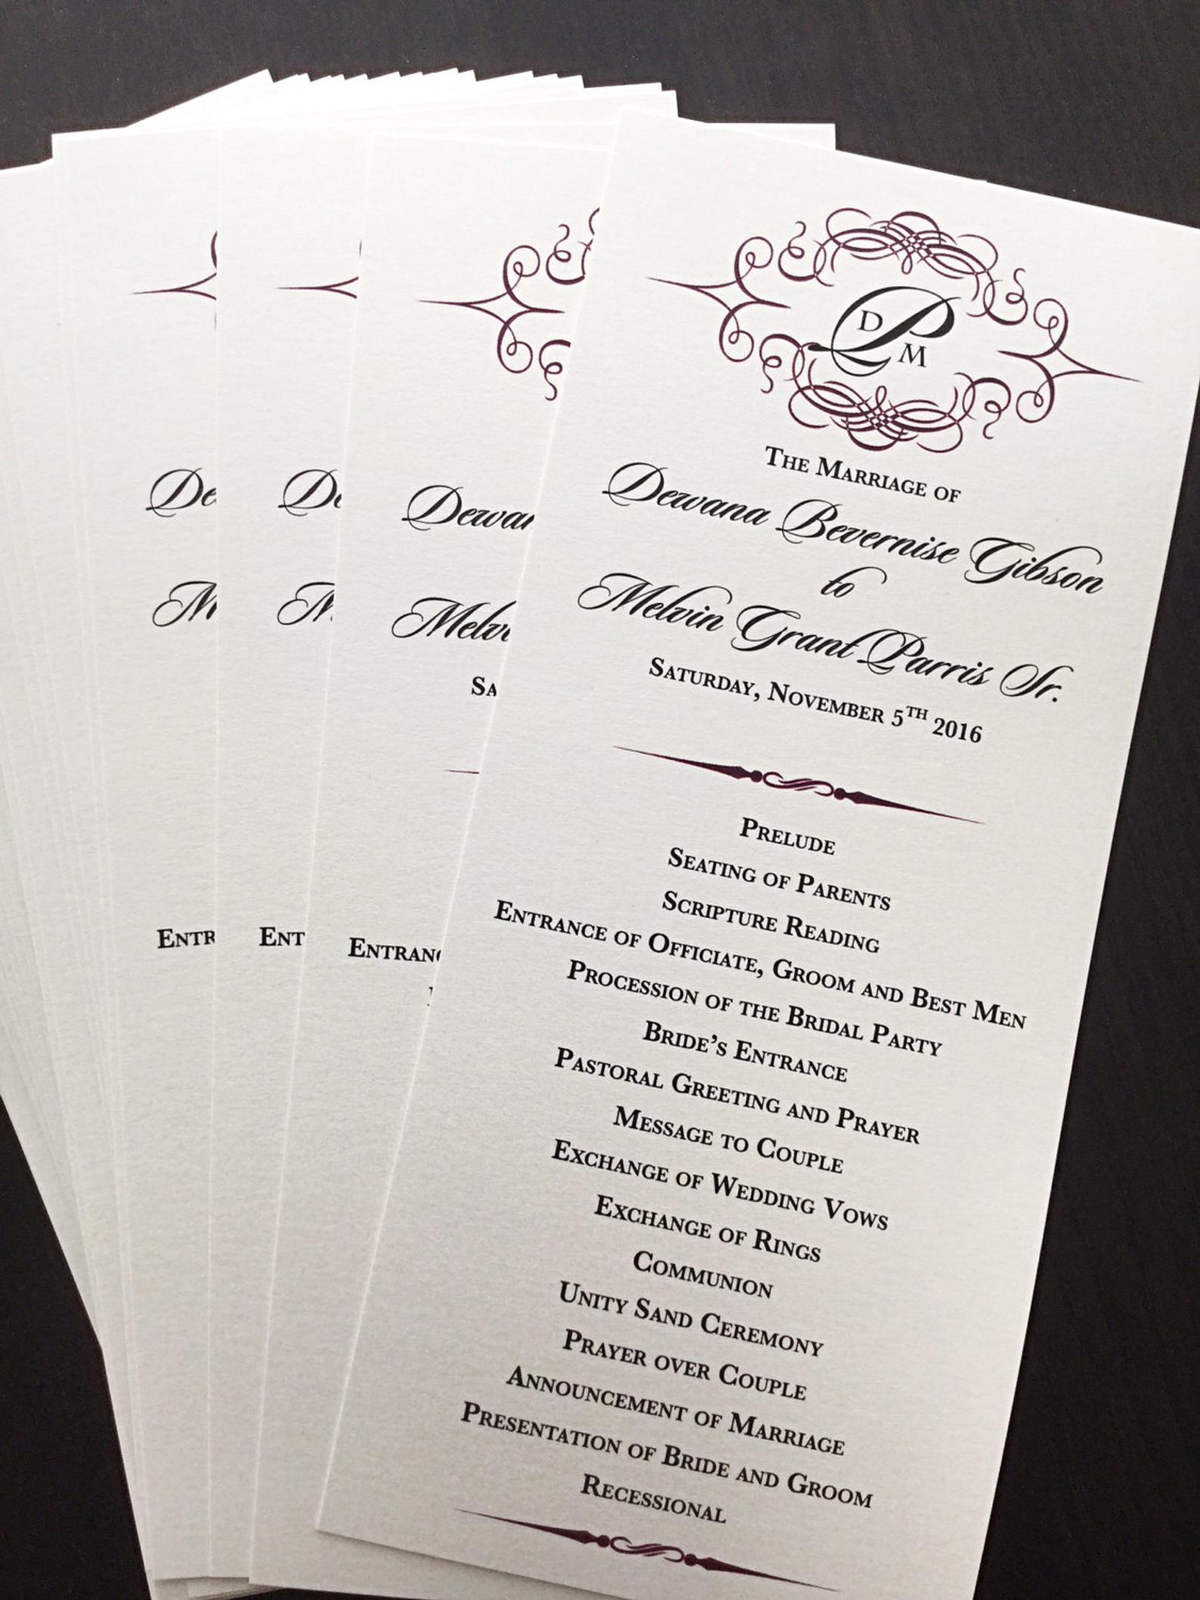 D P M
The Marriage of
Dewana Bevernise Gibson
to
Melvin Grant Parris Sr.
Saturday, November 5TH 2016
Prelude
Seating of Parents
Scripture Reading
Entrance of Officiate, Groom and Best Men
Procession of the Bridal Party
Bride's Entrance
Pastoral Greeting and Prayer
Message to Couple
Exchange of Wedding Vows
Exchange of Rings
Communion
Unity Sand Ceremony
Prayer over Couple
Announcement of Marriage
Presentation of Bride and Groom
Recessional
De
M
Entr
De
M
Ent
Dewan
Melv
Sa
Entranc